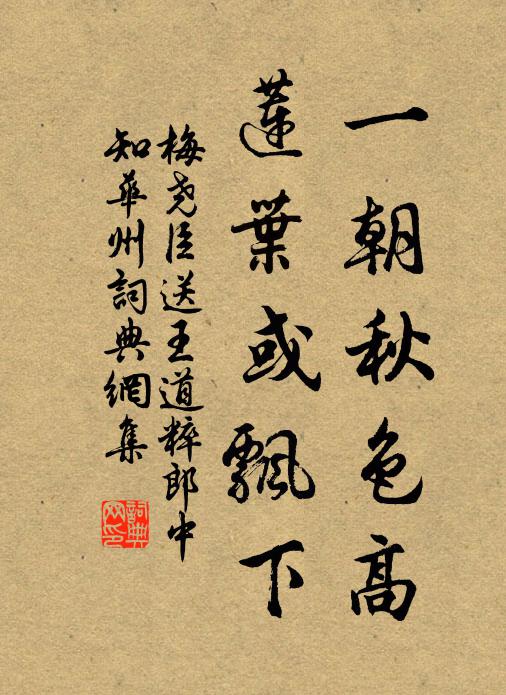 一朝秋色高
蓮葉或飄下
梅堯臣送王道粹郎中
知華州詞典網集
詞典
网印